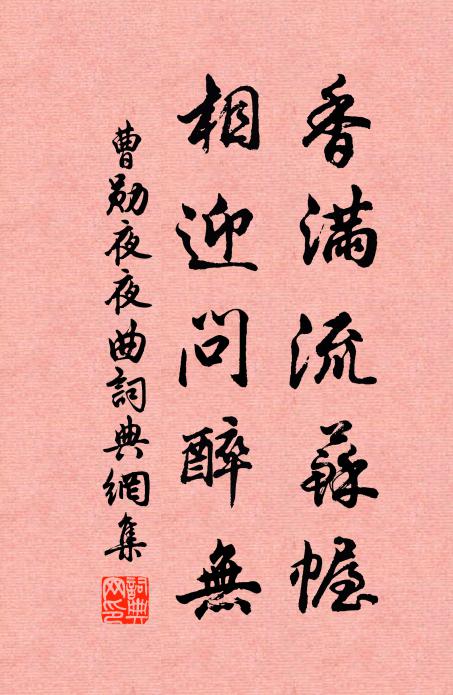 香滿流蘇幄
相迎問醉無
曹勛夜夜曲詞典網集
詞典網印